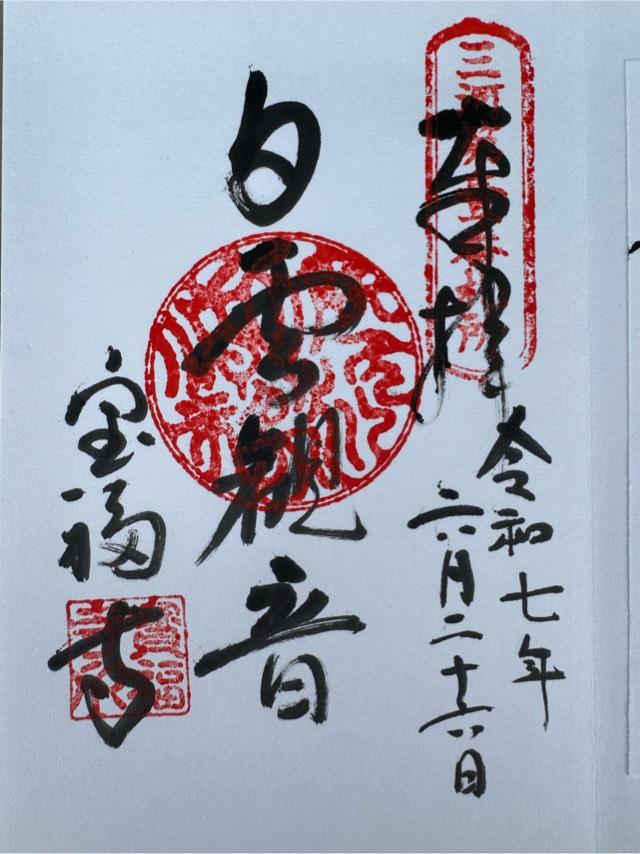 奉拝
令和七年
六月二十六日
白雲観音
宝福寺